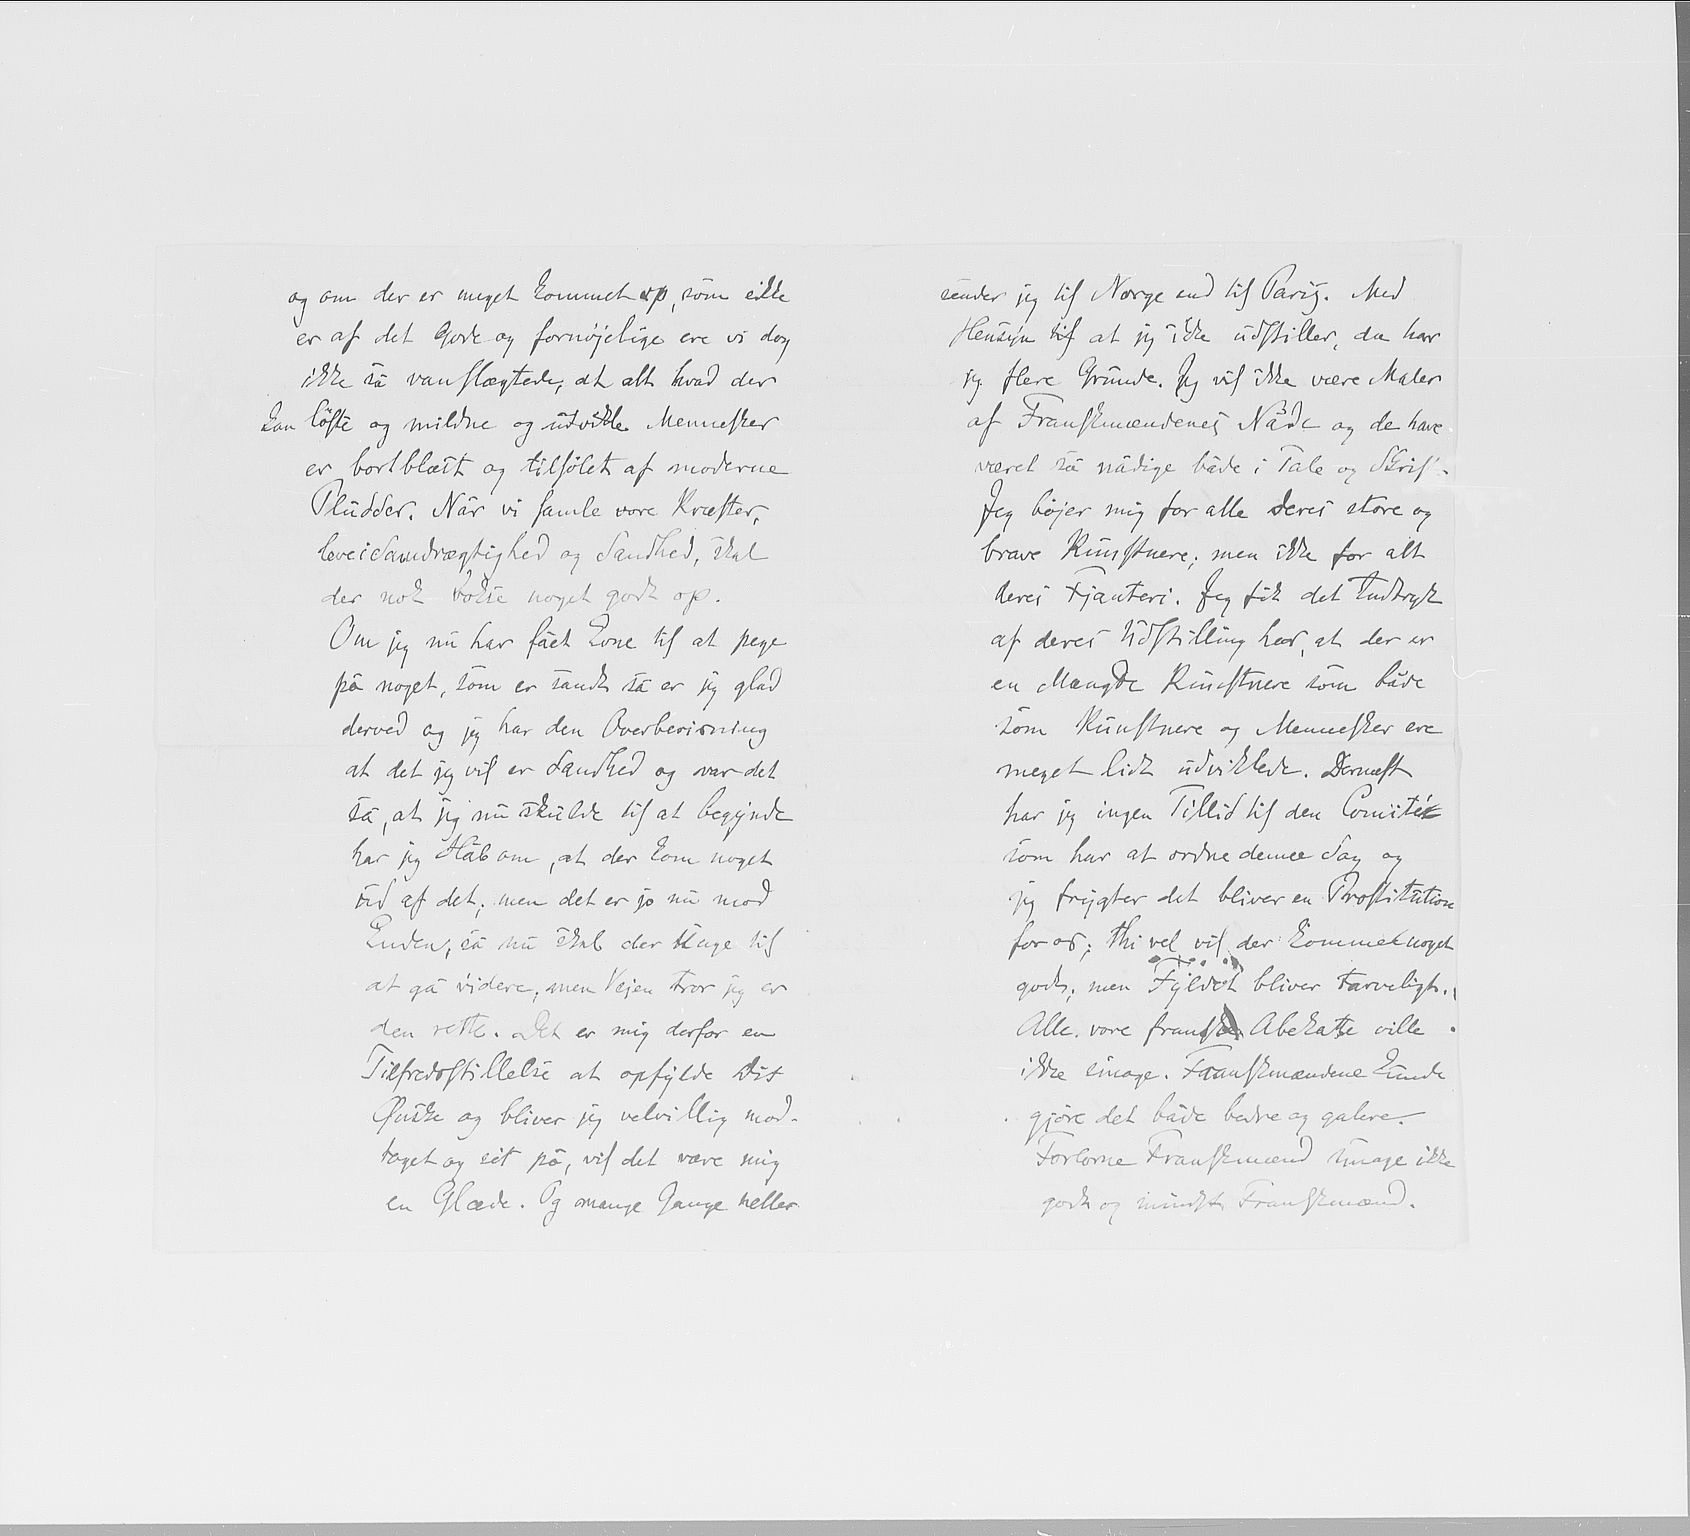 og om der er meget kommet op, som ikke
er af det Gode og fornøjelige ere vi dog
ikke så vanslægtede, at alt hvad der
kan løfte og mildne og udvikle Mennesker
er bortblæst og tilsølet af moderne
Pludder. Når vi samle vore Kræfter,
leve i Samdrægtighed og Sandhed, skal
der nok vokse noget godt op.
Om jeg nu har fået Evne til at pege
på noget, som er sandt så er jeg glad
derved og jeg har den Overbevisning
at det jeg vil er Sandhed og var det
så, at jeg nu skulde til at begynde
har jeg Håb om, at der kom noget
ud af det; men det er jo nu mod
Enden, så nu skal der Unge til
at gå videre, men Vejen tror jeg er
den rette. Det er mig derfor en
Tilfredsstillelse at opfylde Dit
Ønske og bliver jeg velvillig mod-
taget og set på, vil det være mig
en Glæde. Og mange Gange heller
sender jeg til Norge end til Paris. Med
Hensyn til at jeg ikke udstiller, da har
jeg flere Grunde. Jeg vil ikke være Maler
af Franskmændenes Nåde og de have
været så nådige både i Tale og Skrif.
Jeg bøjer mig for alle deres store og
brave Kunstnere; men ikke for alt
deres Fjanteri. Jeg fik det Indtryk
af deres Udstilling her, at der er
en Mængde Kunstnere som både
som Kunstnere og Mennesker ere
meget lidt udviklede. Dernæst
har jeg ingen Tillid til den Comité
som har at ordne denne Sag og
jeg frygter det bliver en Prostitution
for os; thi vel vil der komme noget
godt; men Fyldet bliver tarveligt.
Alle vore franske Abekatte ville
ikke smage. Franskmændene kunde
gjøre det både bedre og galere.
Forlorne Franskmænd smage ikke
godt og mindst Franskmænd.